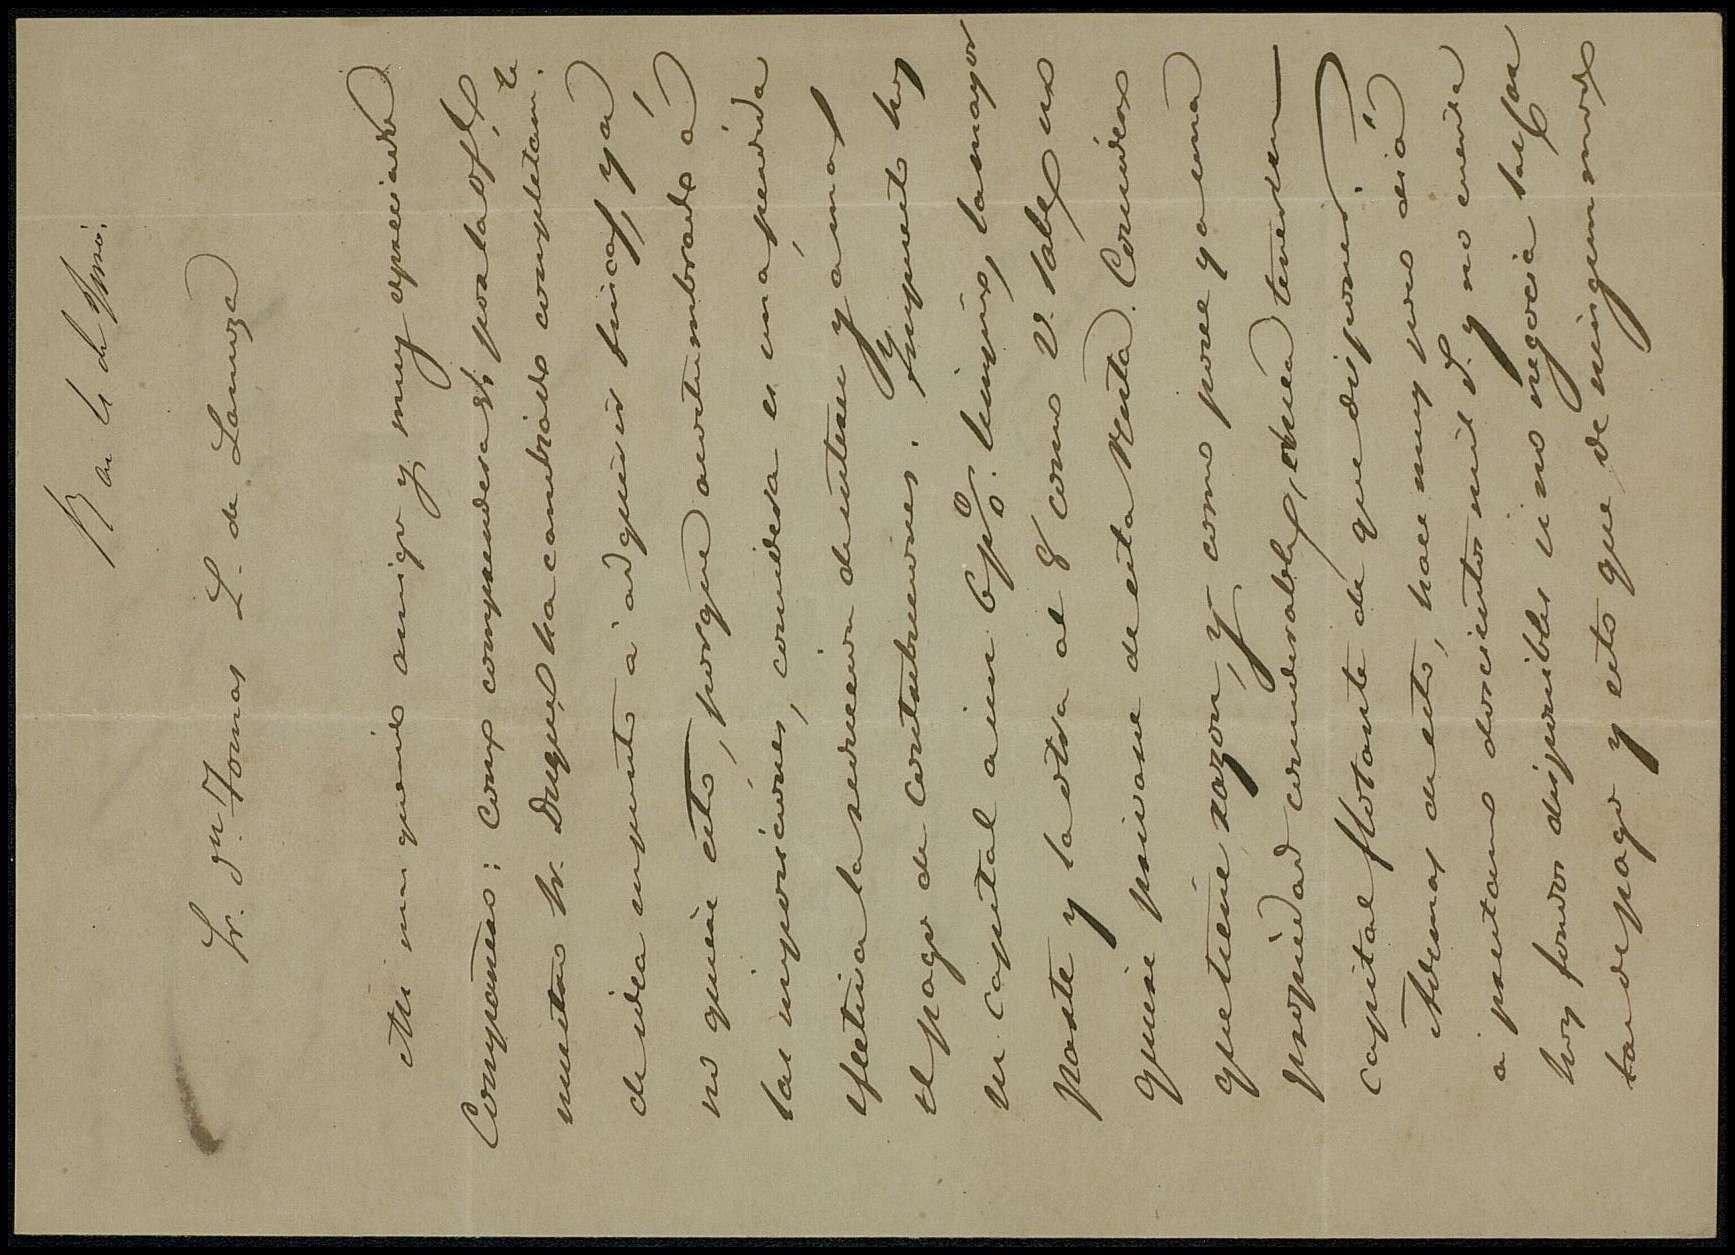 Sr. Dn. Tomas L. de Lanuza
Mi mui querido amigo y muy apreciado
Compañero: como comprenderá V. por la of.l
nuestro Sr. Duque ha cambiado completam.te
de idea respecto á adquirir fincas, ya
no quiere esto, porque acostumbrado á
las imposiciones, considera es una perdida
efectiva la reduccion de interes y amas
el pago de contribuciones. Y supuesto hoy
su capital a un 6 p% liquido, la mayor
parte y la otra al 8 como V. sabe, no
quiere privarse de esta Renta. Considero
que tiene razon, y como posee ya una
propiedad considerable, desea tener un
capital flotante de que disponer.
Ademas de esto, hace muy pocos dias
a prestamo doscientos mil r. y no cuenta
hoy fondos disponibles si no negocia las
tas de pago y esto que de ningun modo